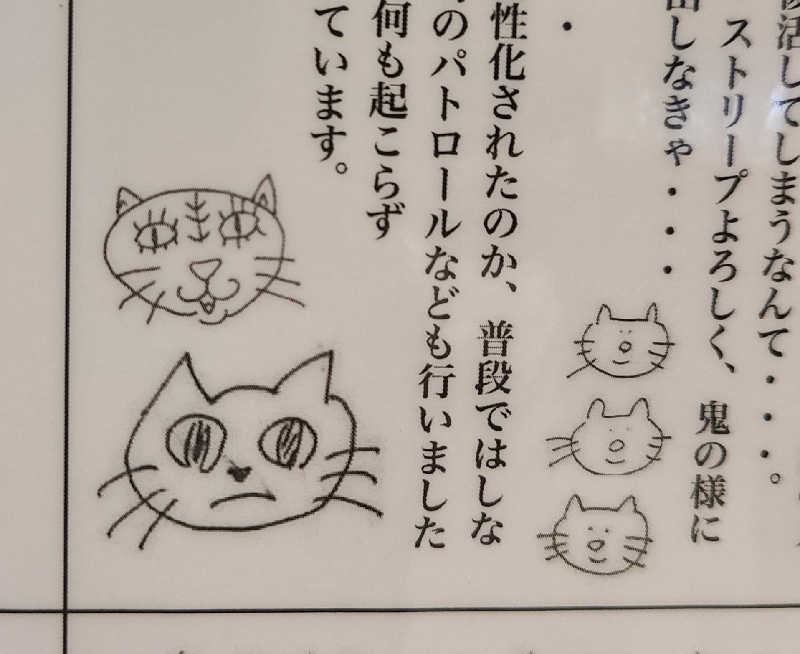 活してしまうなんて・・・。
ストリープよろしく、鬼の様に
出しなきゃ・・・
・
性化されたのか、普段ではしな
のパトロールなども行いました
何も起こらず
ています。